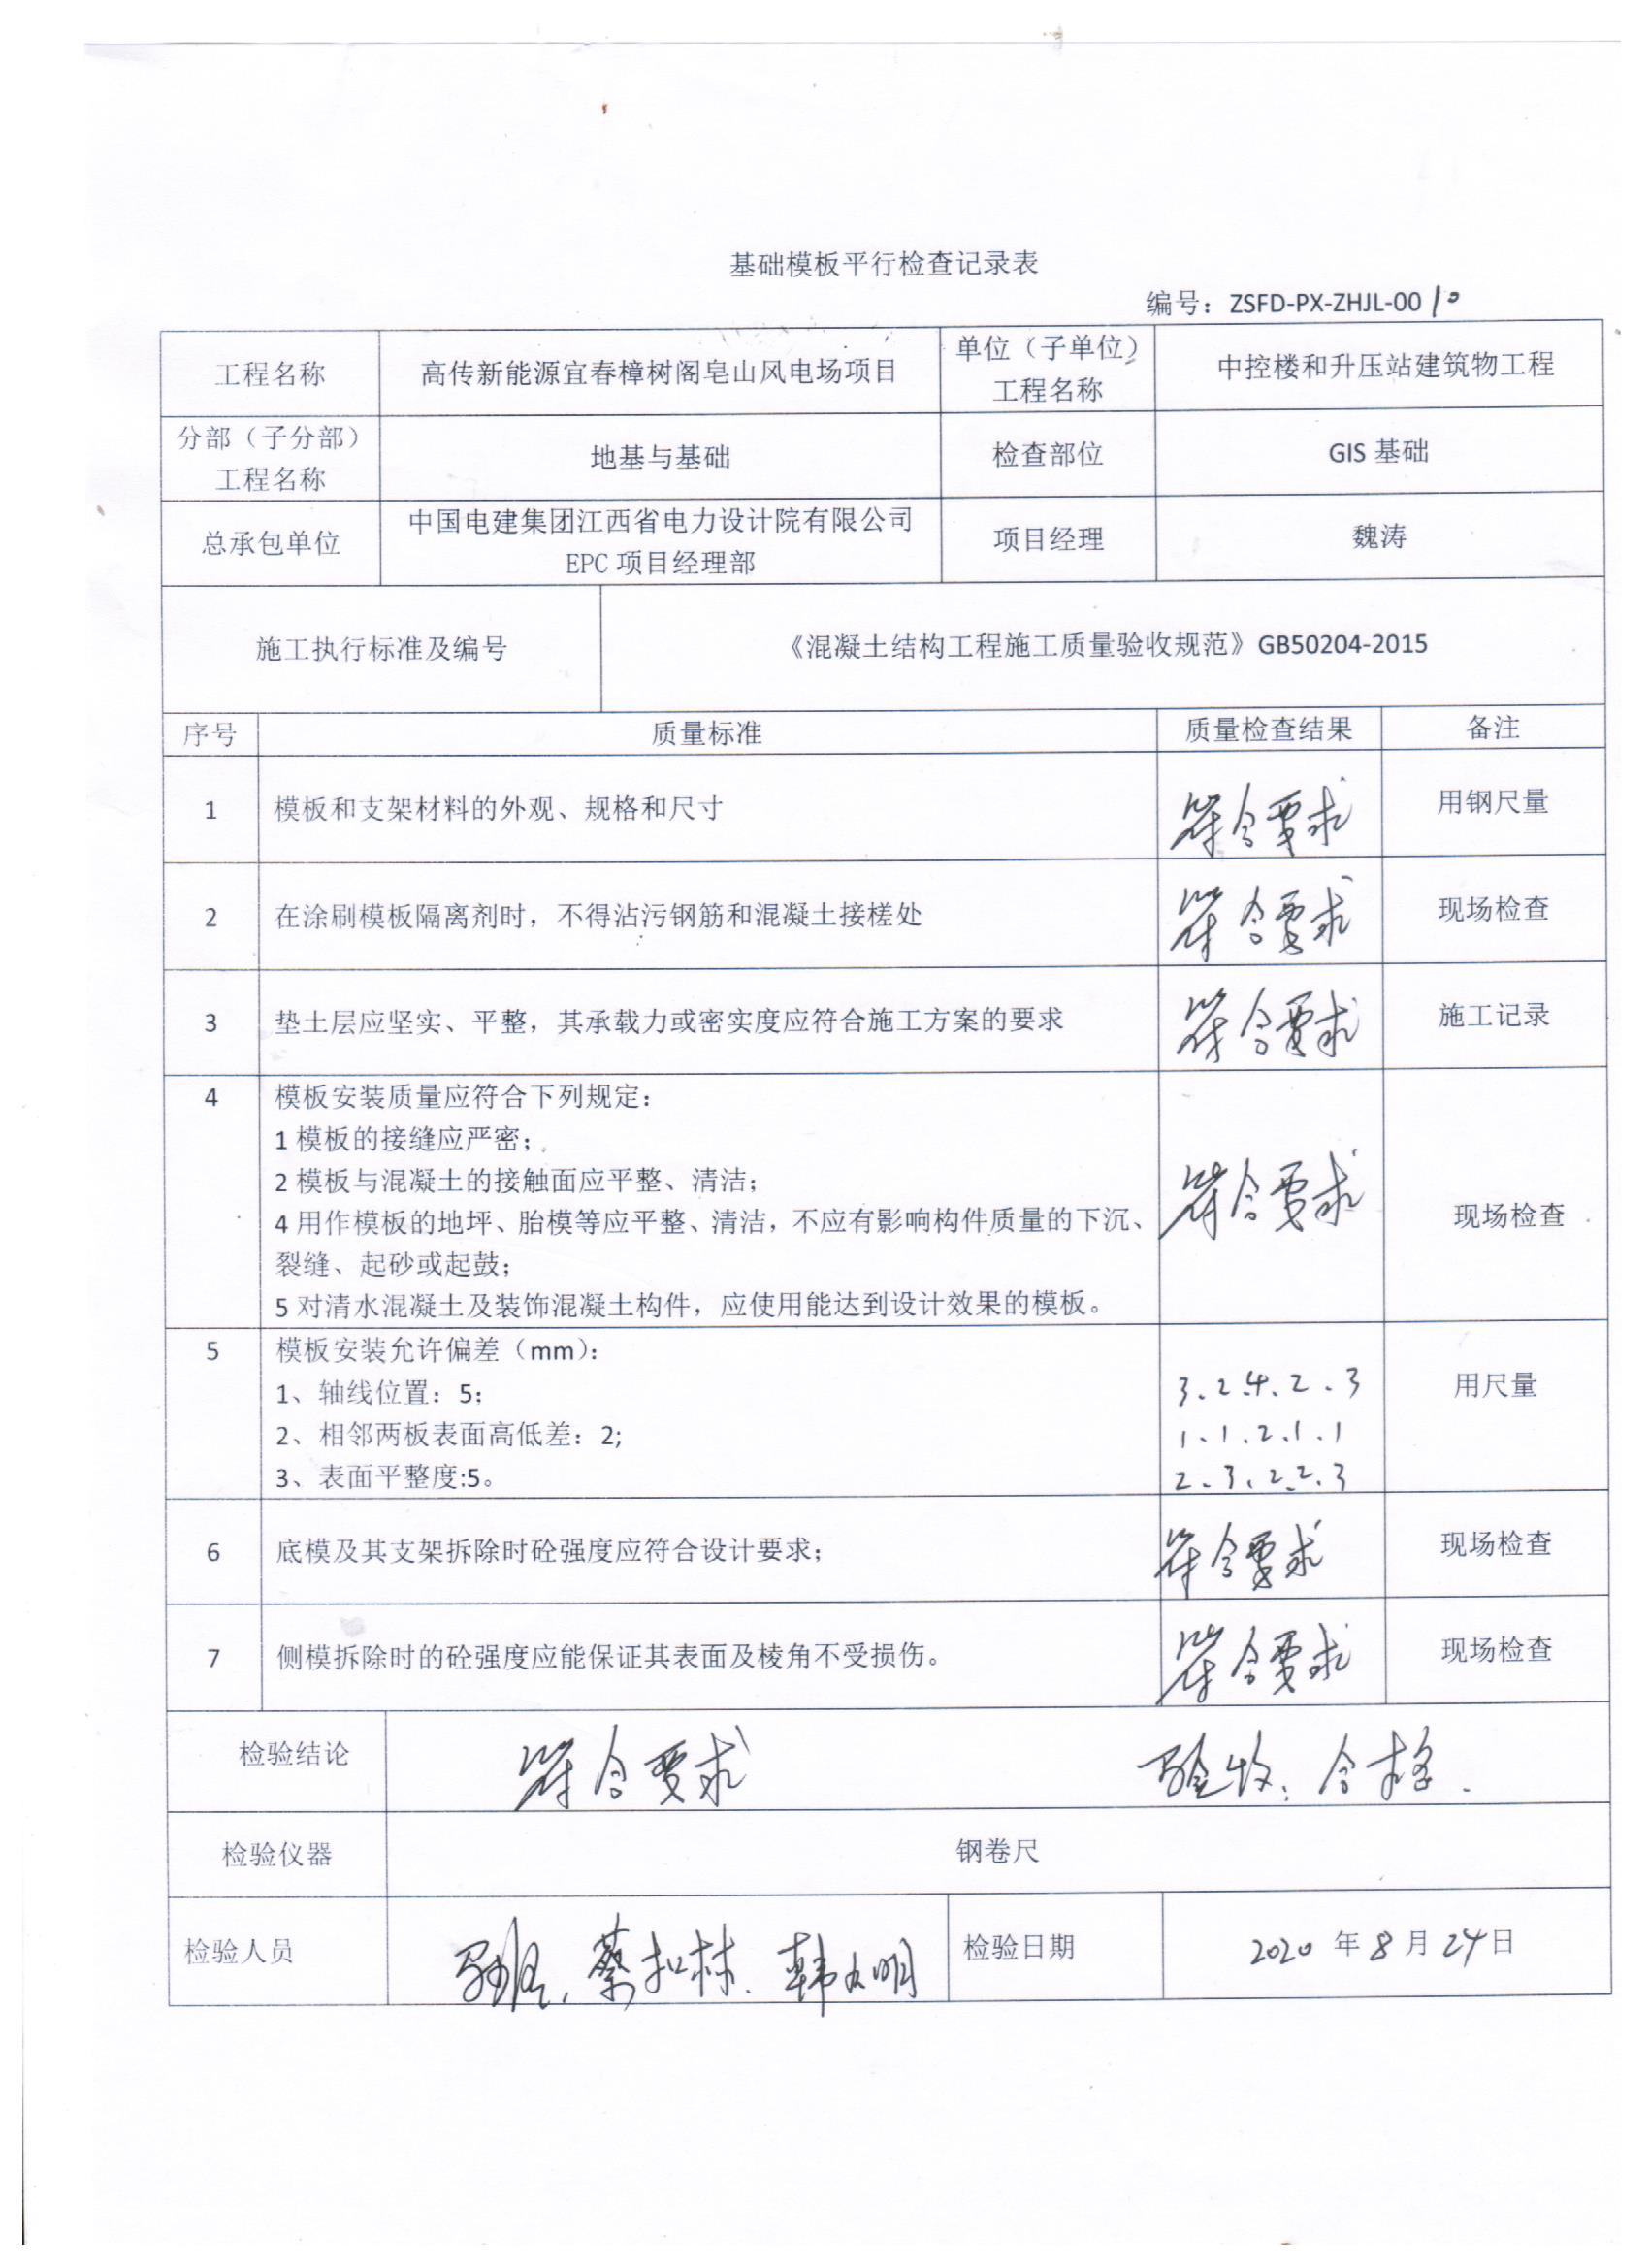 基础模板平行检查记录表
编号：ZSFD-PX-ZHJL-0010
工程名称 高传新能源宜春樟树阁皂山风电场项目 单位（子单位）工程名称 中控楼和升压站建筑物工程
分部（子分部）工程名称 地基与基础 检查部位 GIS 基础
总承包单位 中国电建集团江西省电力设计院有限公司 EPC 项目经理部 项目经理 魏涛
施工执行标准及编号 《混凝土结构工程施工质量验收规范》GB50204-2015
序号 质量标准 质量检查结果 备注
1 模板和支架材料的外观、规格和尺寸 符合要求 用钢尺量
2 在涂刷模板隔离剂时，不得沾污钢筋和混凝土接槎处 符合要求 现场检查
3 垫土层应坚实、平整，其承载力或密实度应符合施工方案的要求 符合要求 施工记录
4 模板安装质量应符合下列规定：
1 模板的接缝应严密；
2 模板与混凝土的接触面应平整、清洁；
4 用作模板的地坪、胎模等应平整、清洁，不应有影响构件质量的下沉、
裂缝、起砂或起鼓；
5 对清水混凝土及装饰混凝土构件，应使用能达到设计效果的模板。
符合要求 现场检查
5 模板安装允许偏差（mm）：
1、轴线位置：5； 3.2.4.2.3 用尺量
2、相邻两板表面高低差：2; 1.1.2.1.1
3、表面平整度:5。 2.3.2.2.3
6 底模及其支架拆除时砼强度应符合设计要求； 符合要求 现场检查
7 侧模拆除时的砼强度应能保证其表面及棱角不受损伤。 符合要求 现场检查
检验结论 符合要求 验收合格.
检验仪器 钢卷尺
检验人员 蔡扣林. 韩文明 检验日期 2020 年 8 月 24 日